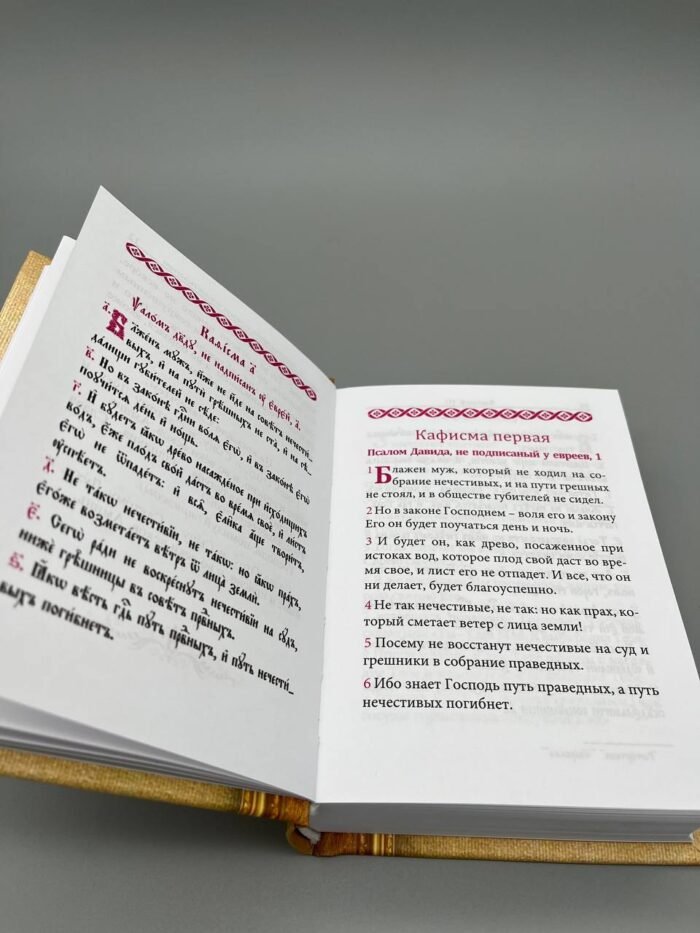 Каѳі́сма а҃
Ѱало́мъ дв҃ду, не надпи́санъ ᲂу҆ є҆врє́й, а҃.
а҃. Блаже́нъ мꙋ́жъ, и҆́же не и҆́де на совѣ́тъ нечести́_
выхъ, и҆ на пꙋтѝ грѣ́шныхъ не ста̀, и҆ на сѣ_
да́лищи гꙋби́телей не сѣ́де:
в҃. Но въ зако́нѣ гдⷭ҇ни во́лѧ є҆гѡ̀, и҆ въ зако́нѣ є҆гѡ̀
поꙋчи́тсѧ де́нь и҆ но́щь.
г҃. И҆ бꙋ́детъ ꙗ҆́кѡ дре́во насажде́ное при и҆схо́дищихъ
во́дъ, є҆́же пло́дъ сво́й да́стъ во вре́мѧ своѐ, и҆ ли́стъ
є҆гѡ̀ не ѿпаде́тъ: и҆ всѧ̑, є҆ли̑ка а҆́ще твори́тъ,
ᲂу҆спѣ́етъ.
д҃. Не та́кѡ нечести́вїи, не та́кѡ: но ꙗ҆́кѡ пра́хъ,
є҆го́же возмета́етъ вѣ́тръ ѿ лица̀ землѝ.
є҃. Сегѡ̀ ра́ди не воскре́снꙋтъ нечести́вїи на сꙋ́дъ,
нижѐ грѣ̑шницы въ совѣ́тъ првⷣныхъ.
ѕ҃. Ꙗ҆́кѡ вѣ́сть гдⷭ҇ь пꙋ́ть првⷣныхъ, и҆ пꙋ́ть нечести́_
выхъ поги́бнетъ.
Кафисма первая
Псалом Давида, не подписаный у евреев, 1
1 Блажен муж, который не ходил на со-
брание нечестивых, и на пути грешных
не стоял, и в обществе губителей не сидел.
2 Но в законе Господнем – воля его и закону
Его он будет поучаться день и ночь.
3 И будет он, как древо, посаженное при
истоках вод, которое плод свой даст во вре-
мя свое, и лист его не отпадет. И все, что он
ни делает, будет благоуспешно.
4 Не так нечестивые, не так: но как прах, ко-
торый сметает ветер с лица земли!
5 Посему не восстанут нечестивые на суд и
грешники в собрание праведных.
6 Ибо знает Господь путь праведных, а путь
нечестивых погибнет.